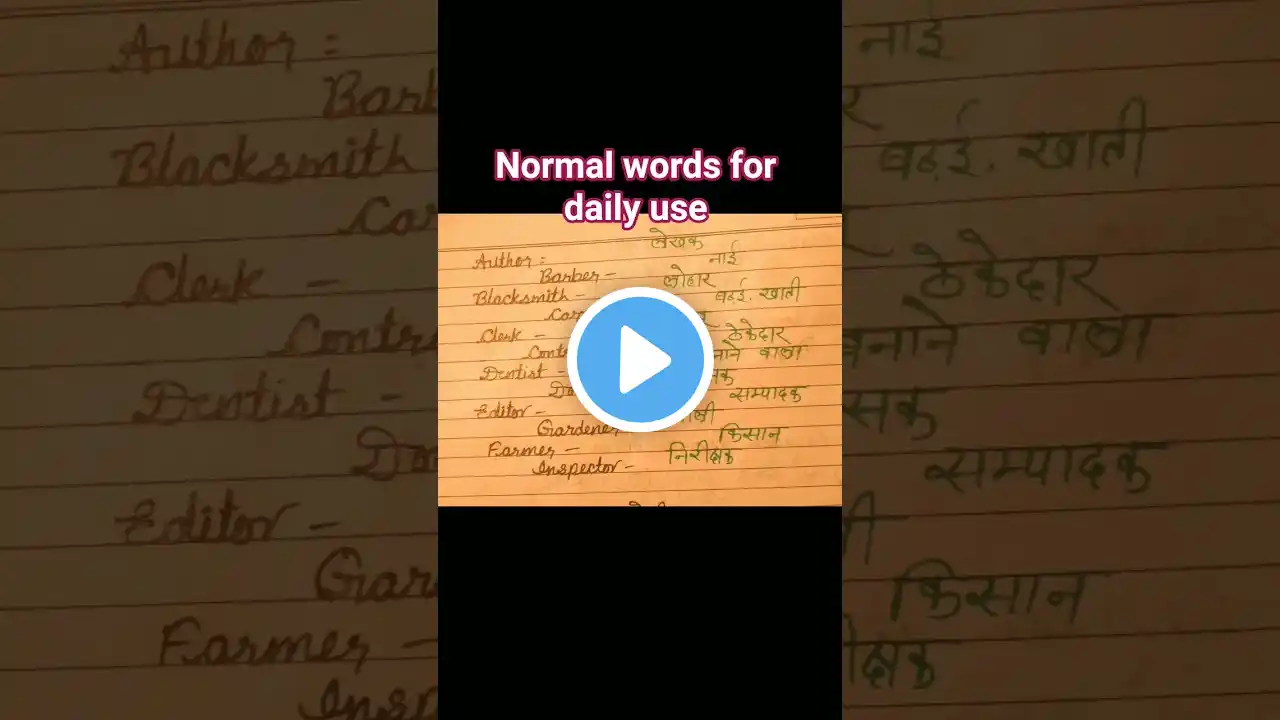 Normal words for
daily use
Author : लेखक
Barber - नाई
Blacksmith - लोहार
बढ़ई. खाती
Clerk -
ठेकेदार
Dentist - वाला
Editor - सम्पादक
Gardener
Farmer - किसान
Inspector - निरीक्षक